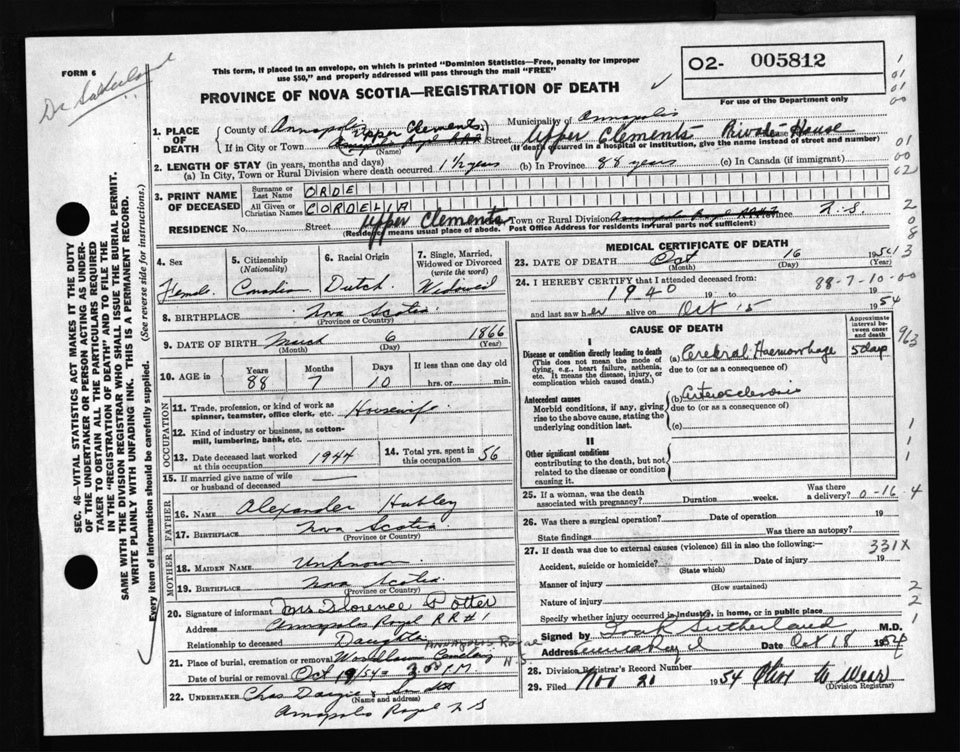 FORM 6
Dr Sutherland
This form, if placed in an envelope, on which is printed "Dominion Statistics—Free, penalty for improper
use $50," and properly addressed will pass through the mail "FREE"
O2- 005812
For use of the Department only
PROVINCE OF NOVA SCOTIA—REGISTRATION OF DEATH
1. PLACE OF DEATH
County of Annapolis Municipality of Annapolis
If in City or Town Upper Clements (Name) Street Upper Clements Private House
(If death occurred in a hospital or institution, give the name instead of street and number)
2. LENGTH OF STAY (in years, months and days)
(a) In City, Town or Rural Division where death occurred 1½ years (b) In Province 88 years (c) In Canada (if immigrant)
3. PRINT NAME OF DECEASED
Surname or Last Name ORDE
All Given or Christian Names CORDELIA
RESIDENCE No. Street Upper Clements Town or Rural Division Province N.S.
(Residence means usual place of abode. Post Office Address for residents in rural parts not sufficient)
4. Sex Female
5. Citizenship (Nationality) Canadian
6. Racial Origin Dutch
7. Single, Married, Widowed or Divorced (write the word) Widowed
8. BIRTHPLACE Nova Scotia
(Province or Country)
9. DATE OF BIRTH March 6 1866
(Month) (Day) (Year)
10. AGE in Years 88 Months 7 Days 10 If less than one day old hrs. or min.
OCCUPATION
11. Trade, profession, or kind of work as spinner, teamster, office clerk, etc. Housewife
12. Kind of industry or business, as cotton-mill, lumbering, bank, etc.
13. Date deceased last worked at this occupation 1944
14. Total yrs. spent in this occupation 56
15. If married give name of wife or husband of deceased
FATHER
16. NAME Alexander Hubley
17. BIRTHPLACE Nova Scotia
(Province or Country)
MOTHER
18. MAIDEN NAME Unknown
19. BIRTHPLACE Nova Scotia
(Province or Country)
20. Signature of informant Mrs Florence Potter
Address Annapolis Royal R R #1
Relationship to deceased Daughter
21. Place of burial, cremation or removal Woodlawn Cemetery Annapolis Royal N.S.
Date of burial or removal Oct 19/54 2 30 P.M.
22. UNDERTAKER Chas Dargie & Son Ltd
(Name and address)
Annapolis Royal N S
MEDICAL CERTIFICATE OF DEATH
23. DATE OF DEATH Oct 16 1954
(Month) (Day) (Year)
24. I HEREBY CERTIFY that I attended deceased from: 88-7-10-00
1940 19 to
and last saw her alive on Oct 15 1954
CAUSE OF DEATH
Approximate interval between onset and death
I
Disease or condition directly leading to death (a) Cerebral Haemorrhage 5 days
(This does not mean the mode of dying, e.g., heart failure, asthenia, etc. It means the disease, injury, or complication which caused death.)
due to (or as a consequence of)
Antecedent causes (b) Arteriosclerosis
Morbid conditions, if any, giving rise to the above cause, stating the underlying condition last.
due to (or as a consequence of)
(c)
II
Other significant conditions
contributing to the death, but not related to the disease or condition causing it.
25. If a woman, was the death associated with pregnancy? Duration weeks. Was there a delivery? 0-16 4
26. Was there a surgical operation? Date of operation 19
State findings Was there an autopsy?
27. If death was due to external causes (violence) fill in also the following:— 331X
Accident, suicide or homicide? (State which) Date of injury 19
Manner of injury (How sustained)
Nature of injury
Specify whether injury occurred in industry, in home, or in public place
Signed by Sutherland M.D.
Address Date Oct 18 1954
28. Division Registrar's Record Number
29. Filed Nov 20 1954
(Division Registrar)
SEC. 46—VITAL STATISTICS ACT MAKES IT THE DUTY
OF THE UNDERTAKER OR PERSON ACTING AS UNDER-
TAKER TO OBTAIN ALL THE PARTICULARS REQUIRED
IN THE "REGISTRATION OF DEATH" AND TO FILE THE
SAME WITH THE DIVISION REGISTRAR WHO SHALL ISSUE THE BURIAL PERMIT.
WRITE PLAINLY WITH UNFADING INK. THIS IS A PERMANENT RECORD.
Every item of information should be carefully supplied. (See reverse side for instructions.)